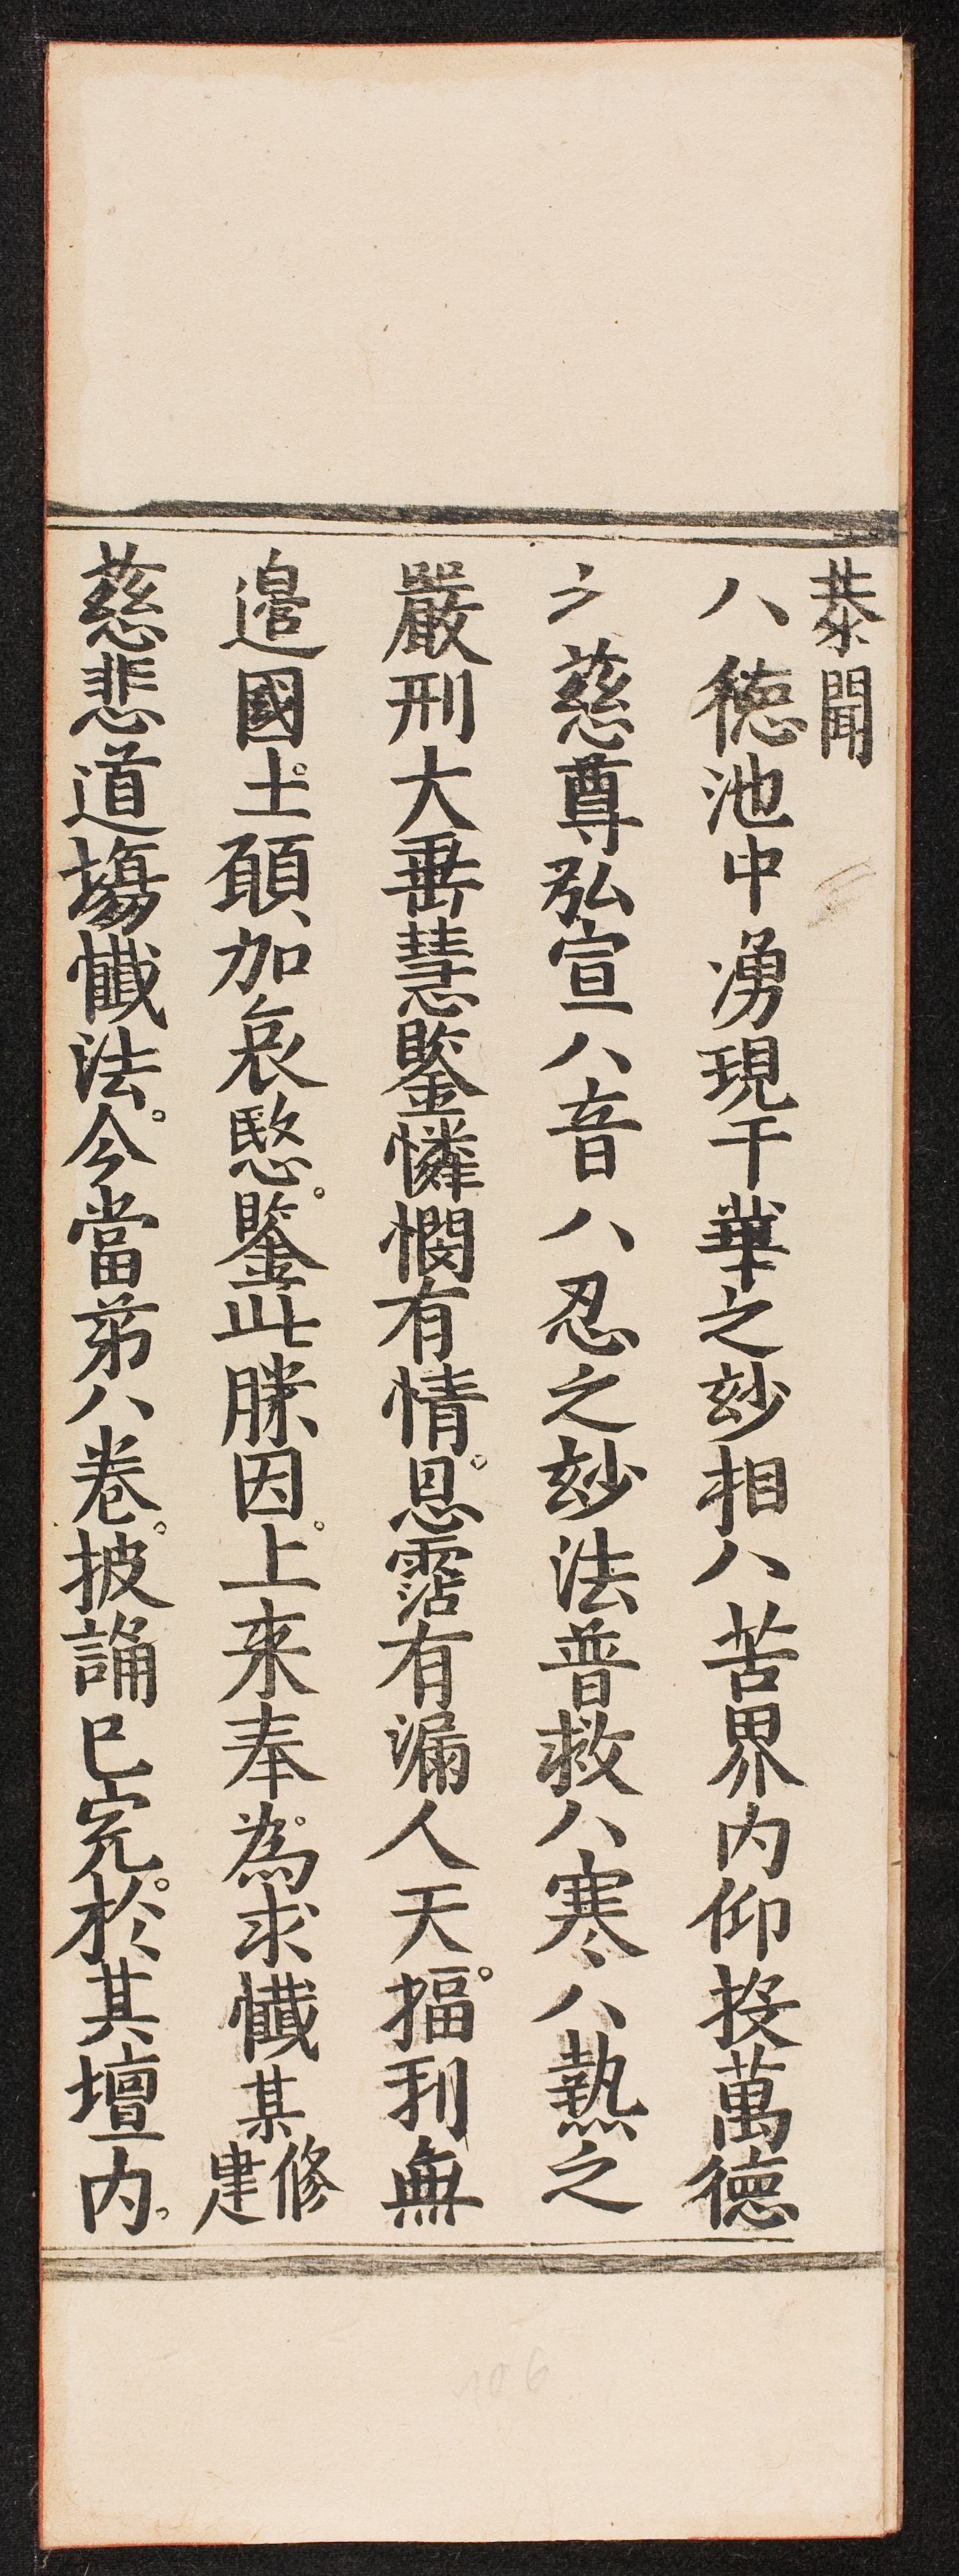 恭聞
八德池中湧現千華之玅相八苦界内仰投萬德
之慈尊弘宣八音八忍之玅法普救八寒八熱之
嚴刑大垂慧鑒憐憫有情恩霑有漏人天福利無
邉國土願加哀愍鑒此勝因上来奉為求懺某修建
慈悲道塲懺法今當第八卷披誦已完於其壇内